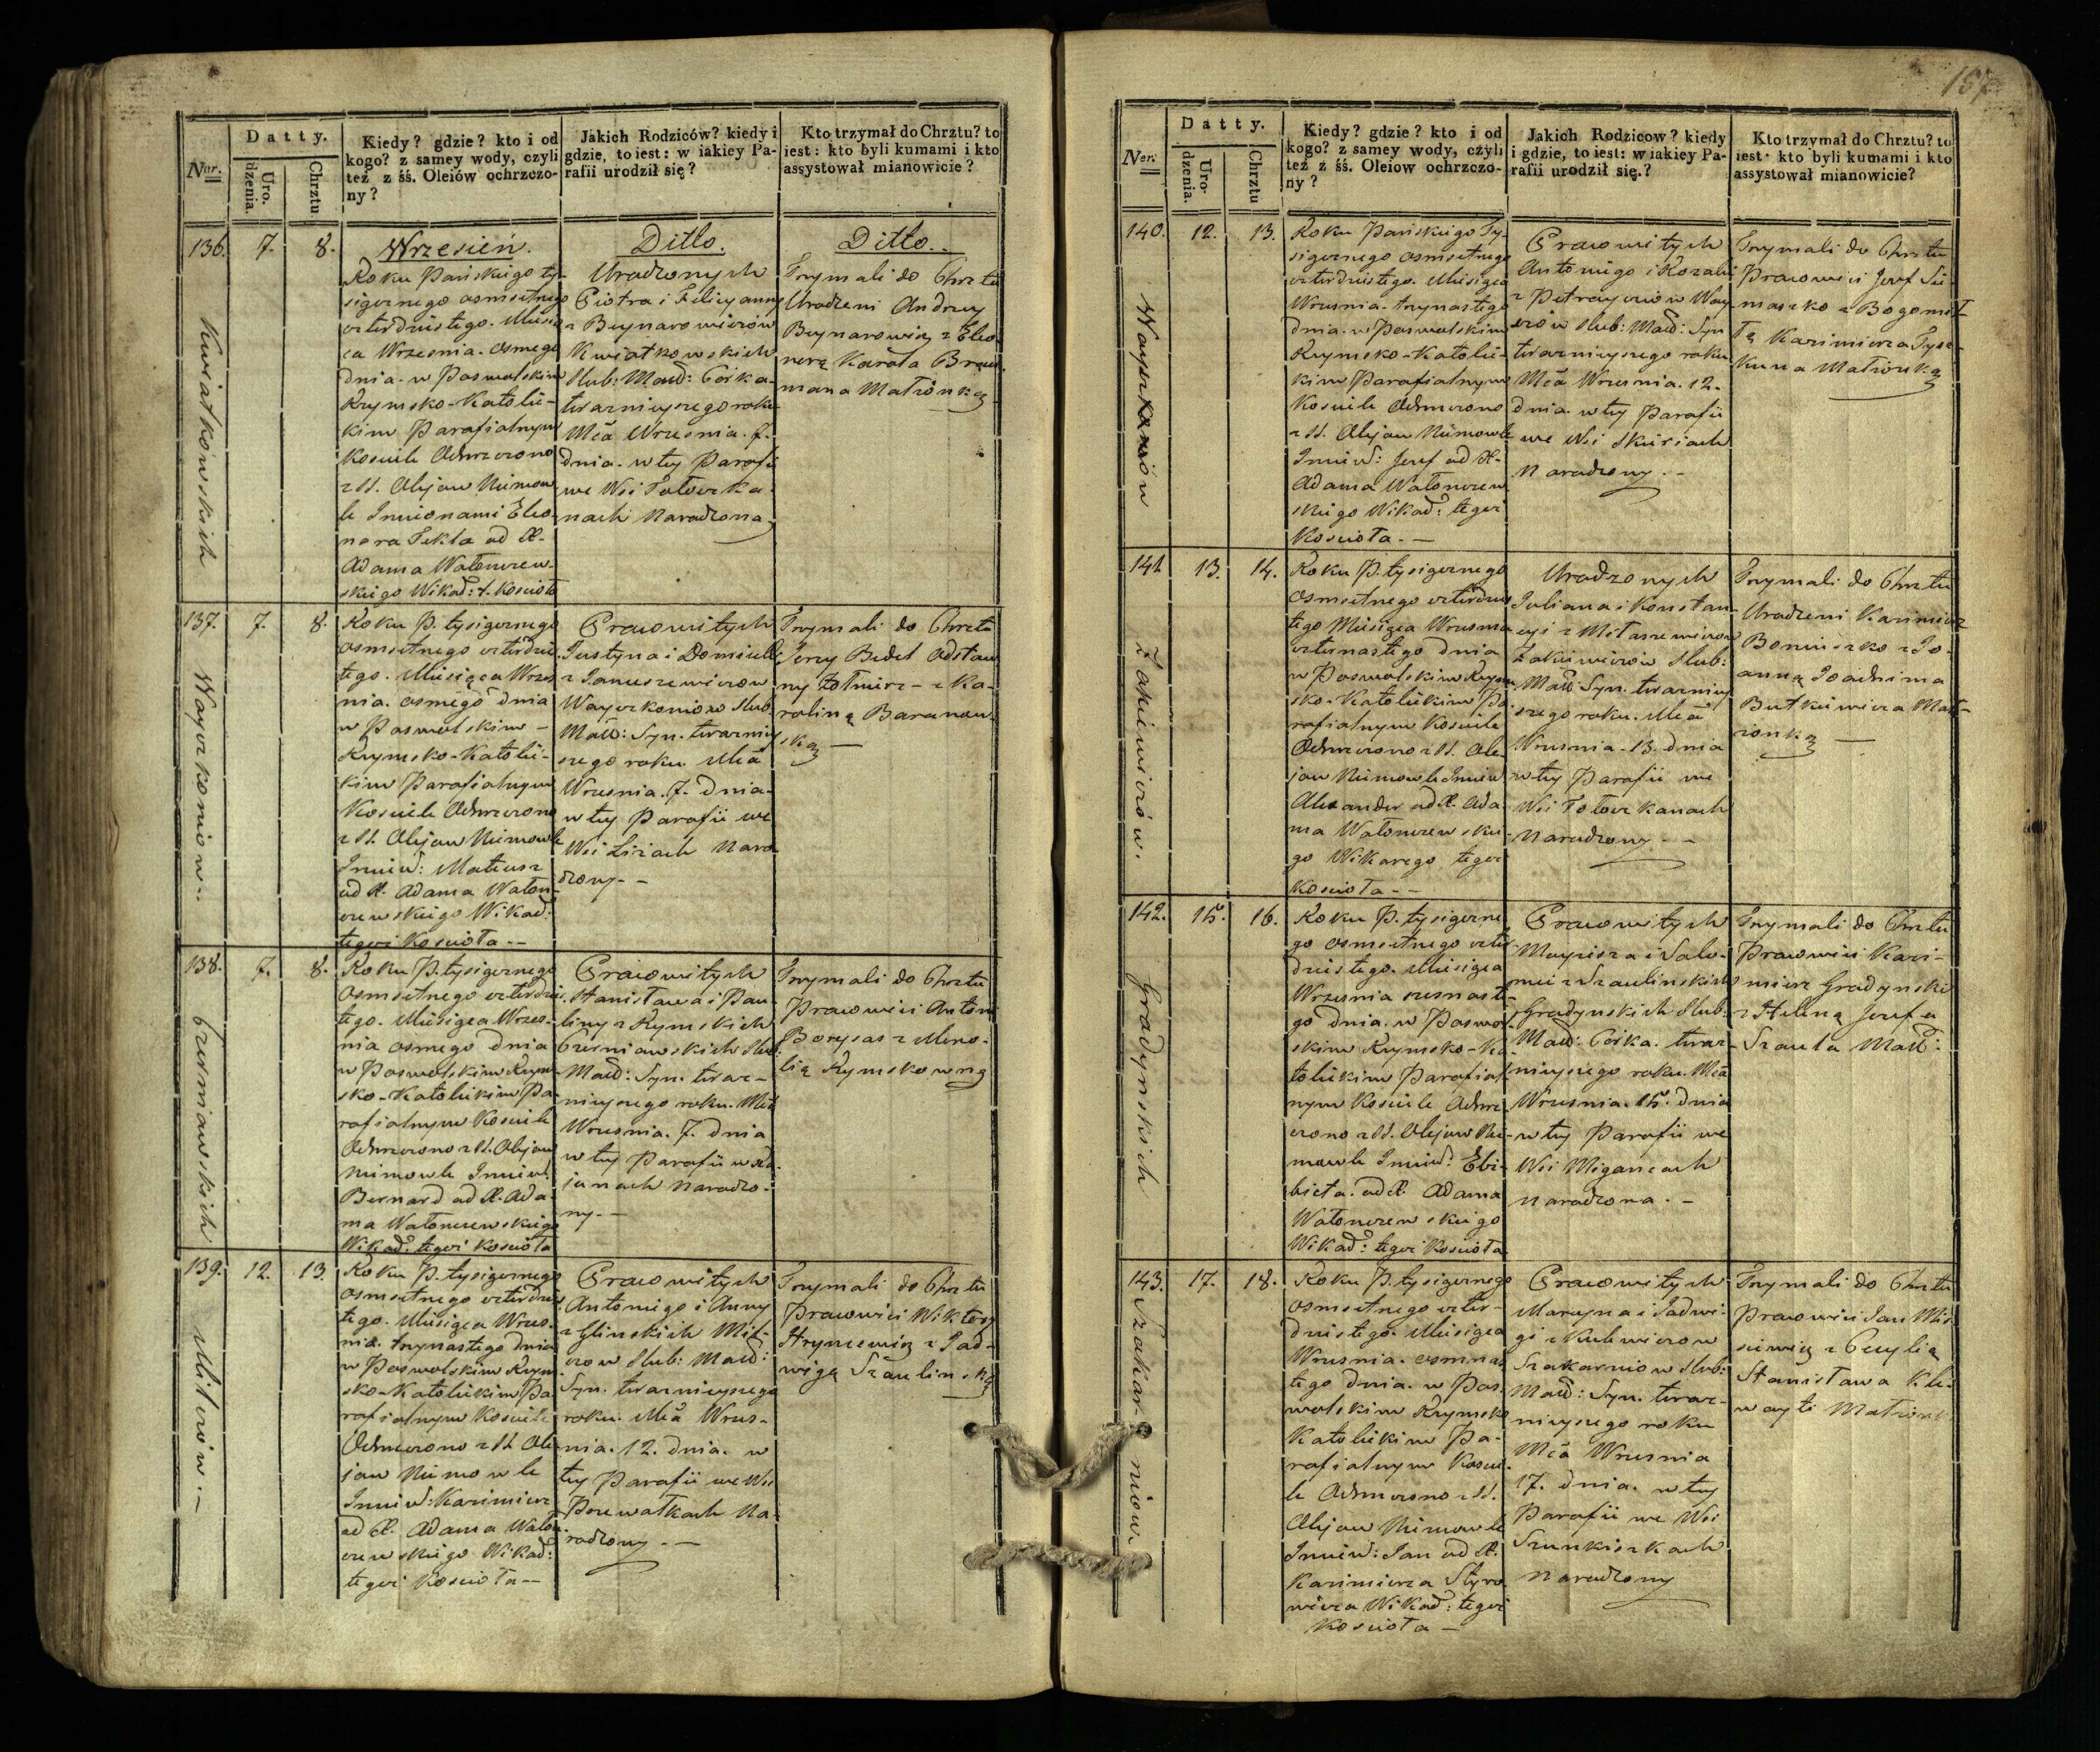 157
Nor.
Datty.
Uro.
dzenia.
Chrztu
Kiedy? gdzie? kto i od
kogo? z samey wody, czyli
też z śś. Oleiów ochrzczo-
ny?
Jakich Rodziców? kiedy i
gdzie, to iest: w iakiey Pa-
rafii urodził się?
Kto trzymał do Chrztu? to
iest: kto byli kumami i kto
assystował mianowicie?
136. 7. 8.
Kwiatkowskich
Wrzesień.
Roku Pańskiego ty-
siącznego osmsetnego
czterdziestego. Miesią-
ca Wrzesnia. osmego
dnia. w Poswolskim
Rzymsko-Katolic-
kim Parafialnym
Kosciele Ochrzczono
z SS. Olejow Niemow-
le Imionami Eleo-
nora Tekla od X.
Adama Watonczew-
skiego Wikar: t. Kościoła
Ditto.
Urodzonych
Piotra i Felicyanny
z Beynarowiczów
Kwiatkowskich
Slub: Małż: Córka
terazniejszego roku
Mca Wrzesnia. 7.
dnia. w tey Parafii
we Wsi Totoczka-
nach Narodzona
Ditto.
Trzymali do Chrztu
Urodzeni Andrzey
Beynarowicz z Eleo-
norą Karola
Małżonką
137. 7. 8.
Wayczkoniow
Roku P. tysiącznego
osmsetnego czterdzie-
stego. Miesiąca Wrzes-
nia. osmego dnia
w Poswolskim
Rzymsko-Katolic-
kim Parafialnym
Kosciele Ochrzczono
z SS. Olejow Niemowle
Imien: Mateusz
od X. Adama Waton-
czewskiego Wikar:
tegoż Kościoła
Pracowitych
Justyna i Domicelli
z Januszewiczow
Wayczkoniow Slub:
Małż: Syn. terazniey-
szego roku Mca
Wrzesnia. 7. dnia
w tey Parafii we
Wsi Liziach Naro-
dzony
Trzymali do Chrztu
Jerzy Bedel Odstaw-
ny Żołnierz z Ka-
roliną Baranow-
ską
138. 7. 8.
Czerniawskich
Roku P. tysiącznego
Osmsetnego czterdzies-
tego. Miesiąca Wrzes-
nia osmego dnia
w Poswolskim Rzym-
sko-Katolickim Pa-
rafialnym Kosciele
Ochrzczono z SS. Olejow
Niemowle Imien:
Bernard od X. Ada-
ma Watonczewskiego
Wikar: tegoż Kościoła
Pracowitych
Stanisława i Pau-
liny z Rymskich
Czerniawskich Slub:
Małż: Syn. teraz-
nieyszego roku. Mca
Wrzesnia. 7. dnia
w tey Parafii w
janach Narodzo-
ny
Trzymali do Chrztu
Pracowici Antoni
Borysas z
lią Rymskowną
139. 12. 13.
Milerów
Roku P. tysiącznego
osmsetnego czterdzies-
tego. Miesiąca Wrzes-
nia. trzynastego dnia
w Poswolskim Rzym-
sko-Katolickim Pa-
rafialnym Kosciele
Ochrzczono z SS. Ole-
jow Niemowle
Imien: Kazimierz
od X. Adama Waton-
czewskiego Wikar:
tegoż Kościoła
Pracowitych
Antoniego i Anny
z Glinskich Mil-
erow Slub: Małż:
Syn. terazniejszego
roku. Mca Wrzes-
nia. 12. dnia. w
tey Parafii we Wsi
Poszewałkach Na-
rodzony
Trzymali do Chrztu
Pracowici Wiktory
Hryncewicz z Jad-
wigą Szaulinską
Ner.
Datty.
Uro-
dzenia.
Chrztu
Kiedy? gdzie? kto i od
kogo? z samey wody, czyli
też z śś. Oleiow ochrzczo-
ny?
Jakich Rodzicow? kiedy
i gdzie, to iest: w iakiey Pa-
rafii urodził się?
Kto trzymał do Chrztu? to
iest: kto byli kumami i kto
assystował mianowicie?
140. 12. 13.
Wayszkoniów
Roku Pańskiego Ty-
siącznego osmsetnego
czterdziestego. Miesiąca
Wrzesnia. trzynastego
dnia. w Poswolskim
Rzymsko-Katolic-
kim Parafialnym
Kosciele Ochrzczono
z SS. Olejow Niemowle
Imien: Jozef od X.
Adama Watonczew-
skiego Wikar: tegoż
Kościoła
Pracowitych
Antoniego i Rozalii
z Pietraycziow Way-
oniów Slub: Małż: Syn
terazniejszego roku
Mca Wrzesnia. 12.
dnia. w tey Parafii
we Wsi Skiriach
Narodzony
Trzymali do Chrztu
Pracowici Jozef Sie-
maszko z Bogomił-
łą Kazimierza Tysz-
kuna Małżonką
141. 13. 14.
Zakiewiczów.
Roku P. tysiącznego
Osmsetnego czterdzies-
tego Miesiąca Wrzesnia
czternastego dnia
w Poswolskim Rzym-
sko-Katolickim Pa-
rafialnym Kosciele
Ochrzczono z SS. Ole-
jow Niemowle Imien:
Alexander od X. Ada-
ma Watonczewskie-
go Wikarego tegoż
Kościoła
Urodzonych
Juliana i Konstan-
cyi z Mitaszewiczow
Zakiewiczów Slub:
Małż: Syn. terazniey-
szego roku. Mca
Wrzesnia. 13. dnia
w tey Parafii we
Wsi Totoczkanach
Narodzony
Trzymali do Chrztu
Urodzeni Kazimierz
Boniuszko z Jo-
anną Joachima
Butkiewicza Mał-
żonką
142. 15. 16.
Gradynskich
Roku P. tysiączne-
go osmsetnego czter-
dziestego. Miesiąca
Wrzesnia szesnaste-
go dnia. w Poswol-
skim Rzymsko-Ka-
tolickim Parafial-
nym Kosciele Ochrz-
czono z SS. Olejow Nie-
mowle Imien: Elż-
bieta. od X. Adama
Watonczewskiego
Wikar: tegoż Kościoła
Pracowitych
Mayrisza i Salo-
mei z Szaulinskich
Gradynskich Slub:
Małż: Córka. teraz-
nieyszego roku. Mca
Wrzesnia. 15. dnia
w tey Parafii we
Wsi Migancach
Narodzona.
Trzymali do Chrztu
Pracowici Kazi-
mierz Gradynski
z Heleną Jozefa
Szaula Małż:
143. 17. 18.
Szakar- niow
Roku P. tysiącznego
osmsetnego czter-
dziestego. Miesiąca
Wrzesnia. osmnas-
tego dnia. w Pos-
wolskim Rzymsko
Katolickim Pa-
rafialnym Koscie-
le Ochrzczono z SS.
Olejow Niemowle
Imien: Jan od X.
Kazimierza Styro-
wicza Wikar: tegoż
Kościoła
Pracowitych
Marcyna i Jadwi-
gi z Kulewiczow
Szakarniow Slub:
Małż: Syn. teraz-
nieyszego roku
Mca Wrzesnia
17. dnia. w tey
Parafii we Wsi
Szunkiszkach
Narodzony
Trzymali do Chrztu
Pracowici Jan Mis-
siewicz z Cecylią
Stanisława Kle-
wayti Małżonk